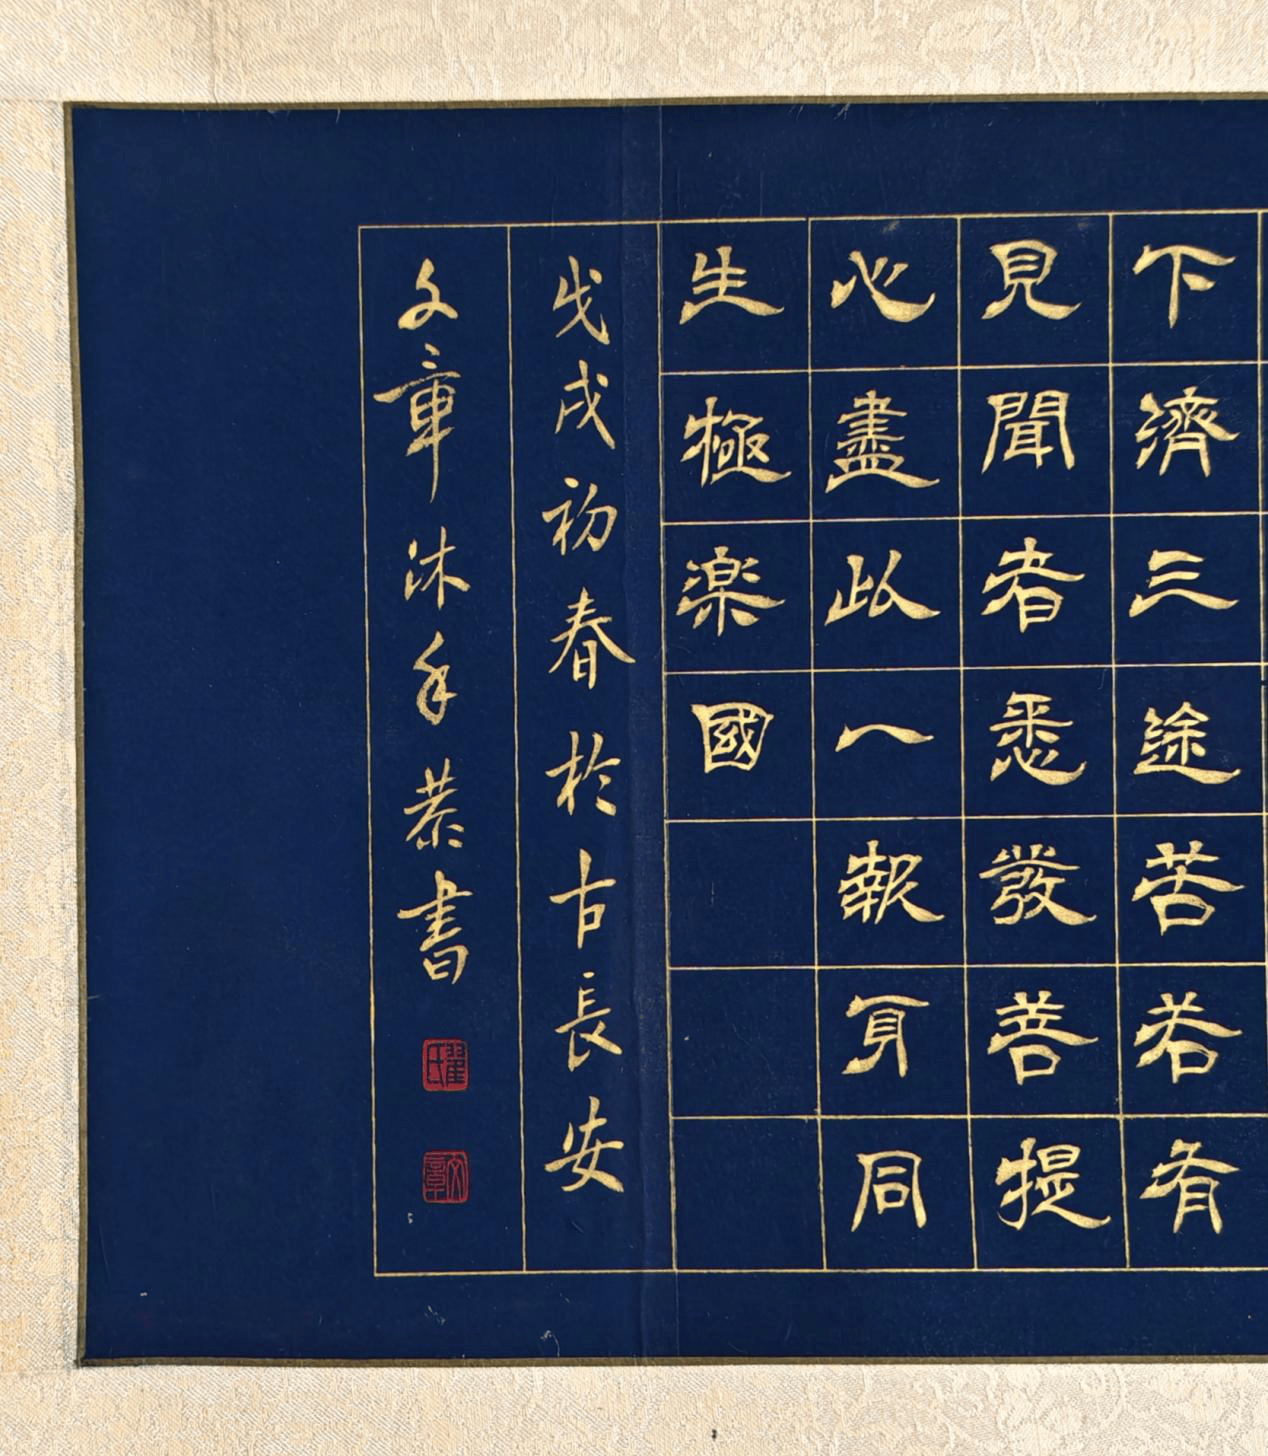 下濟三途苦若有
見聞者悉發菩提
心盡此一報身同
生極楽國
戊戌初春於古長安
文章沐手恭書
翟氏
文章